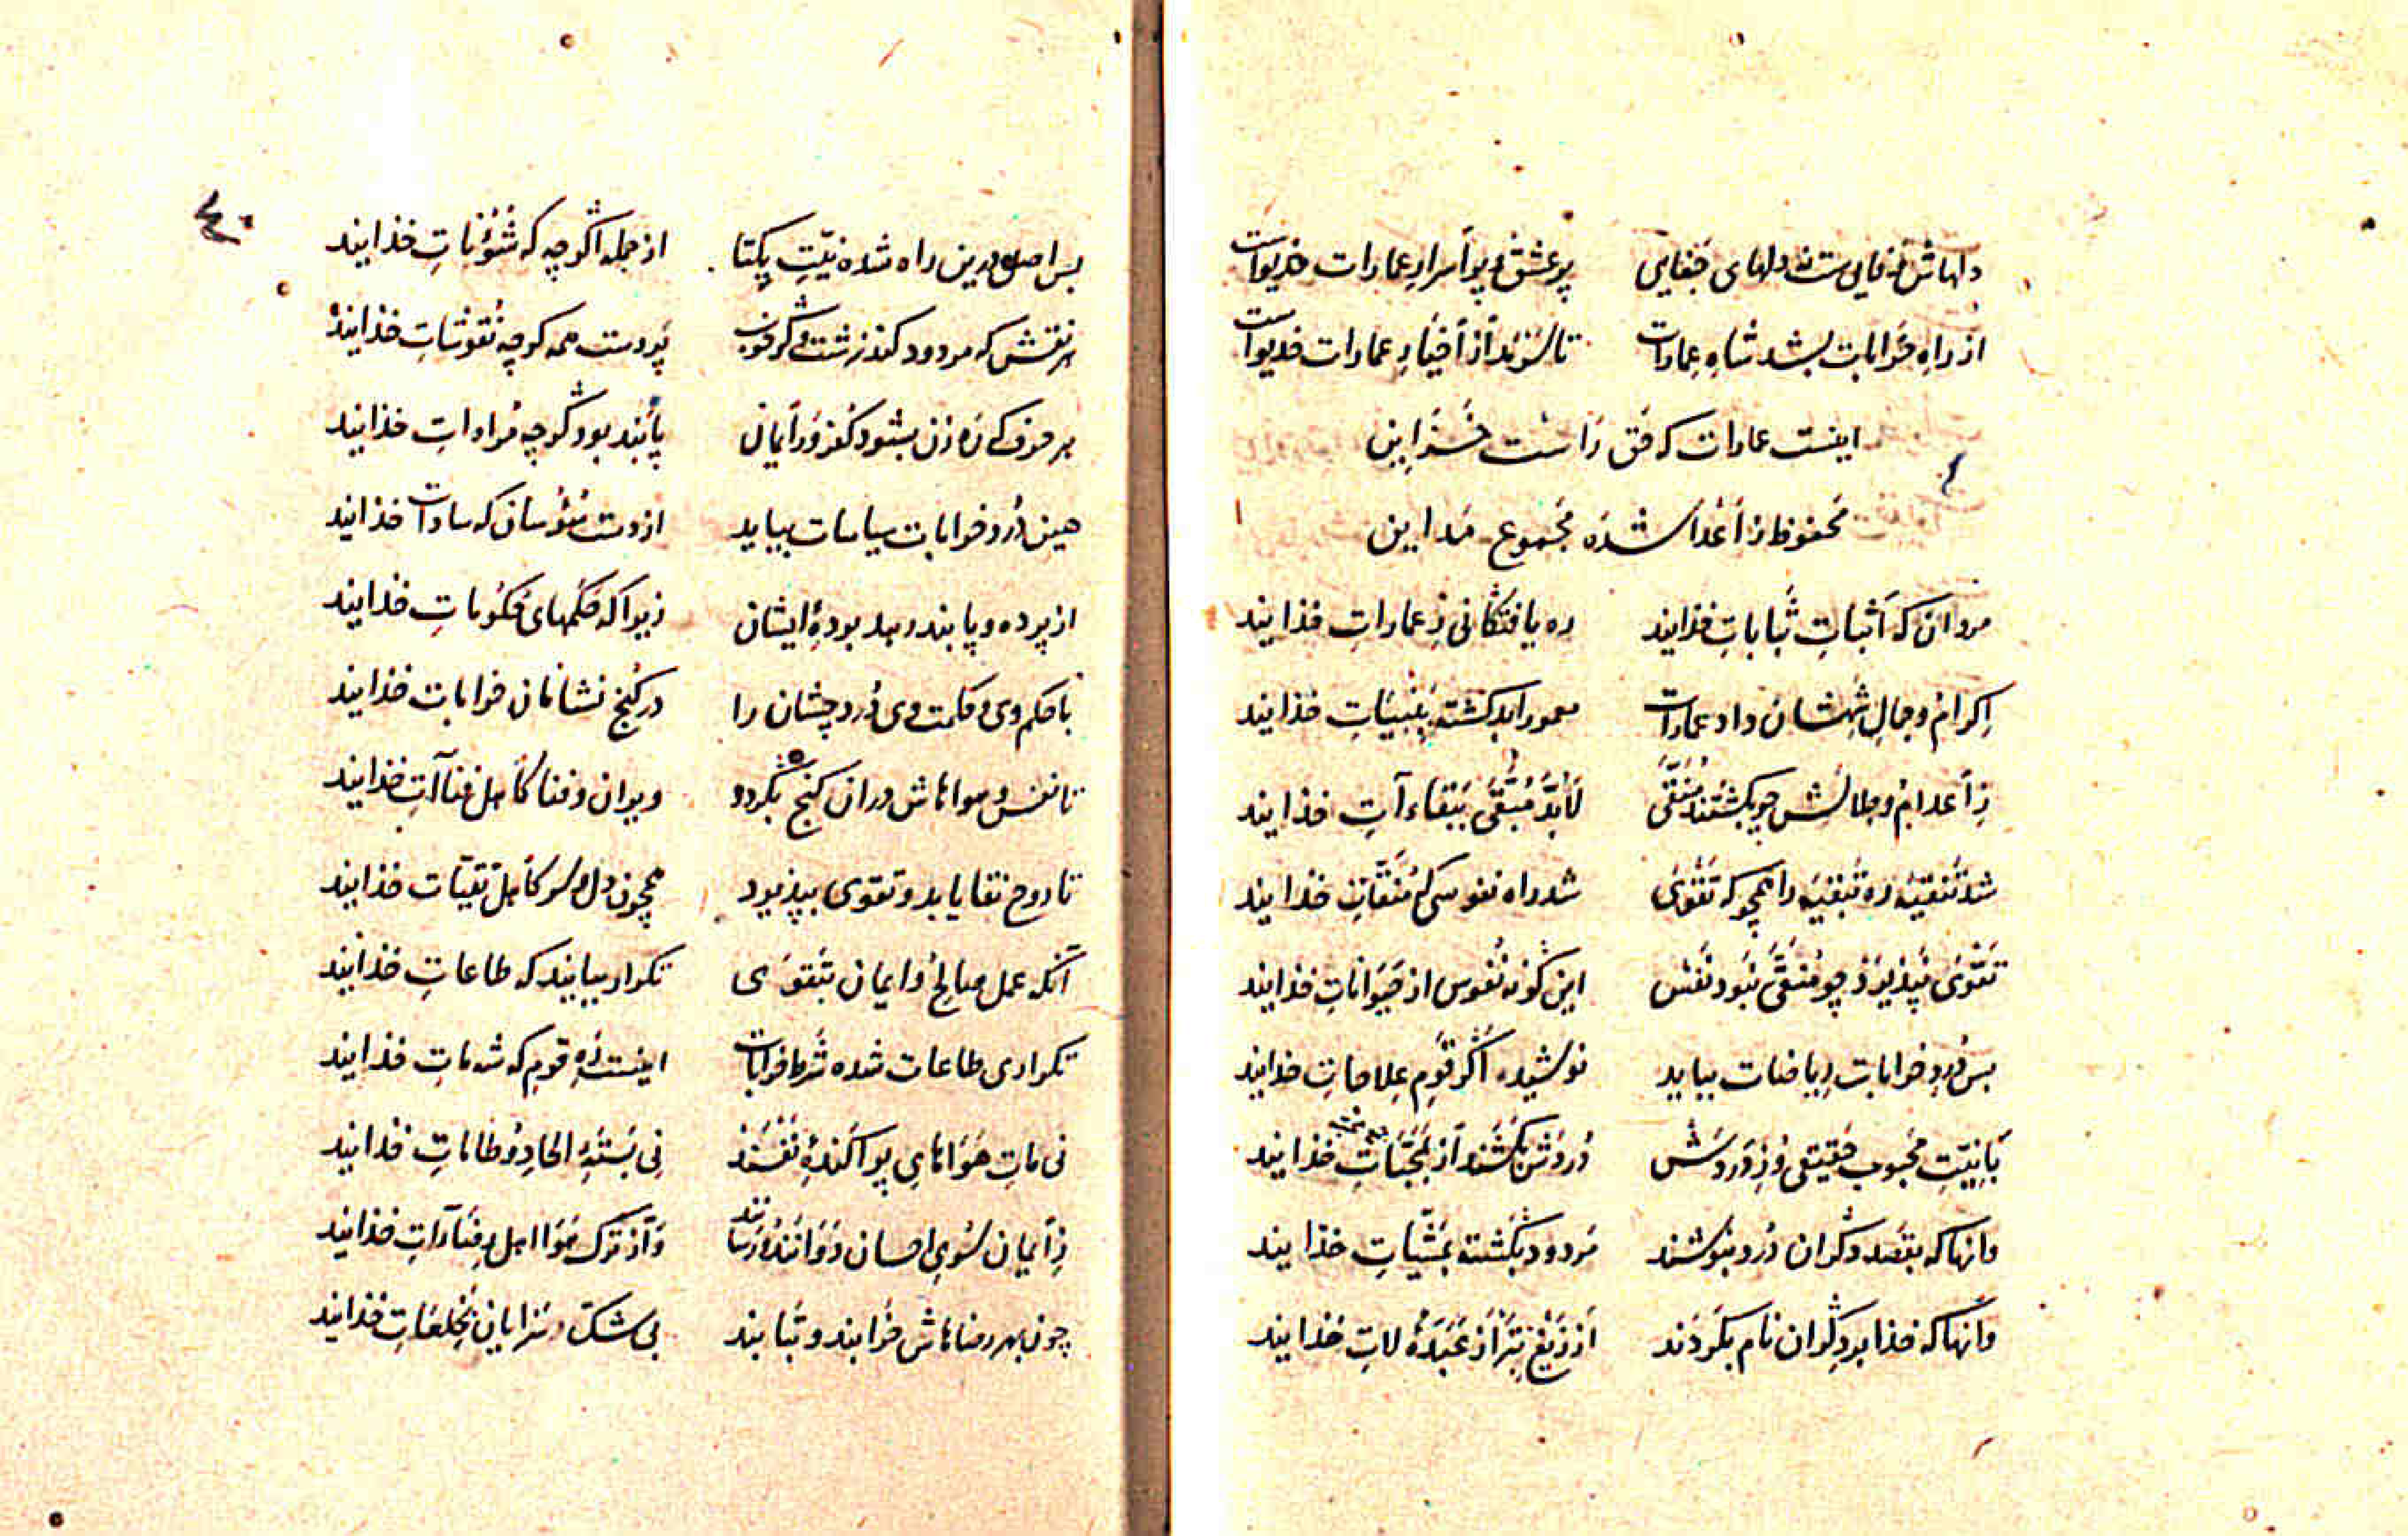 دلهاش نه فانی ست نه دلهای جفایی پر عشق و پر اسرار عمارات خدیوات
از راه خرابات بشد شاه عمارات تا از اخیار عمارات خدیوات
اینست عمارات که حق راست خزاین
محفوظ ز اعدا شده مجموع مداین
مردان که اثبات ثبابات خدایند ره یافتگانی ز عمارات خدایند
اکرام و جمال شهشان داد عمارات معمور ابد گشته خدایند
ز اعدام و جلالش چو بگشتند منقی لابد مبقی ببقاءآت خدایند
شد تنقیه ره تبقیه را همچو که تقوی شد راه نفوسی که منقات خدایند
تقوی نپذیرد چو منقی نبود نفس این گونه نفوس از حیوانات خدایند
بس درد خرابات ریاضات بباید نوشید اگر قوم علامات خدایند
با نیت محبوب حقیقی و ز دردش دردش بکشند از خدایند
وانها که بقصد دگران درد بنوشند مردود بگشته خدایند
وانها که خدا بر دگران نام بکردند از زیغ بتر از عبده لات خدایند
بس اصل درین راه شده نیت یکتا از جمله اگر چه که شؤنات خدایند
هر نقش که مردود کند زشت و گر خوب پردست همه گرچه نقوشات خدایند
هر حرف که ره زن بشود کفر ور ایمان پابند بود گرچه مرادات خدایند
هین درد خرابات سیاسات بباید از دست نفوسان که سادات خدایند
از پرده و پابند رهد بوده ایشان زیرا که حکمهای حکومات خدایند
با حکم وی و حکمت وی درد چشان را در کنج نشانان خرابات خدایند
تا نفس و هواهاش در ان کنج بگردد ویران و فنا کاهل فناآت خدایند
تا روح نقا یابد و تقوی بپذیرد همچون دل و سر کاهل تقیات خدایند
آنکه عمل صالح و ایمان بتقوی تکرار بیابند که طاعات خدایند
تکراری طاعات شده شرط خرابات اینست ره قوم که شه مات خدایند
نی مات هواهای پراکنده نفسند نی بسته الحاد و ظلامات خدایند
ز ایمان سوی احسان روانند و رسانند و از ترک هوا اهل خدایند
چون بهر رضاهاش خرابند و تبابند بی شک سزایان بخلعات خدایند